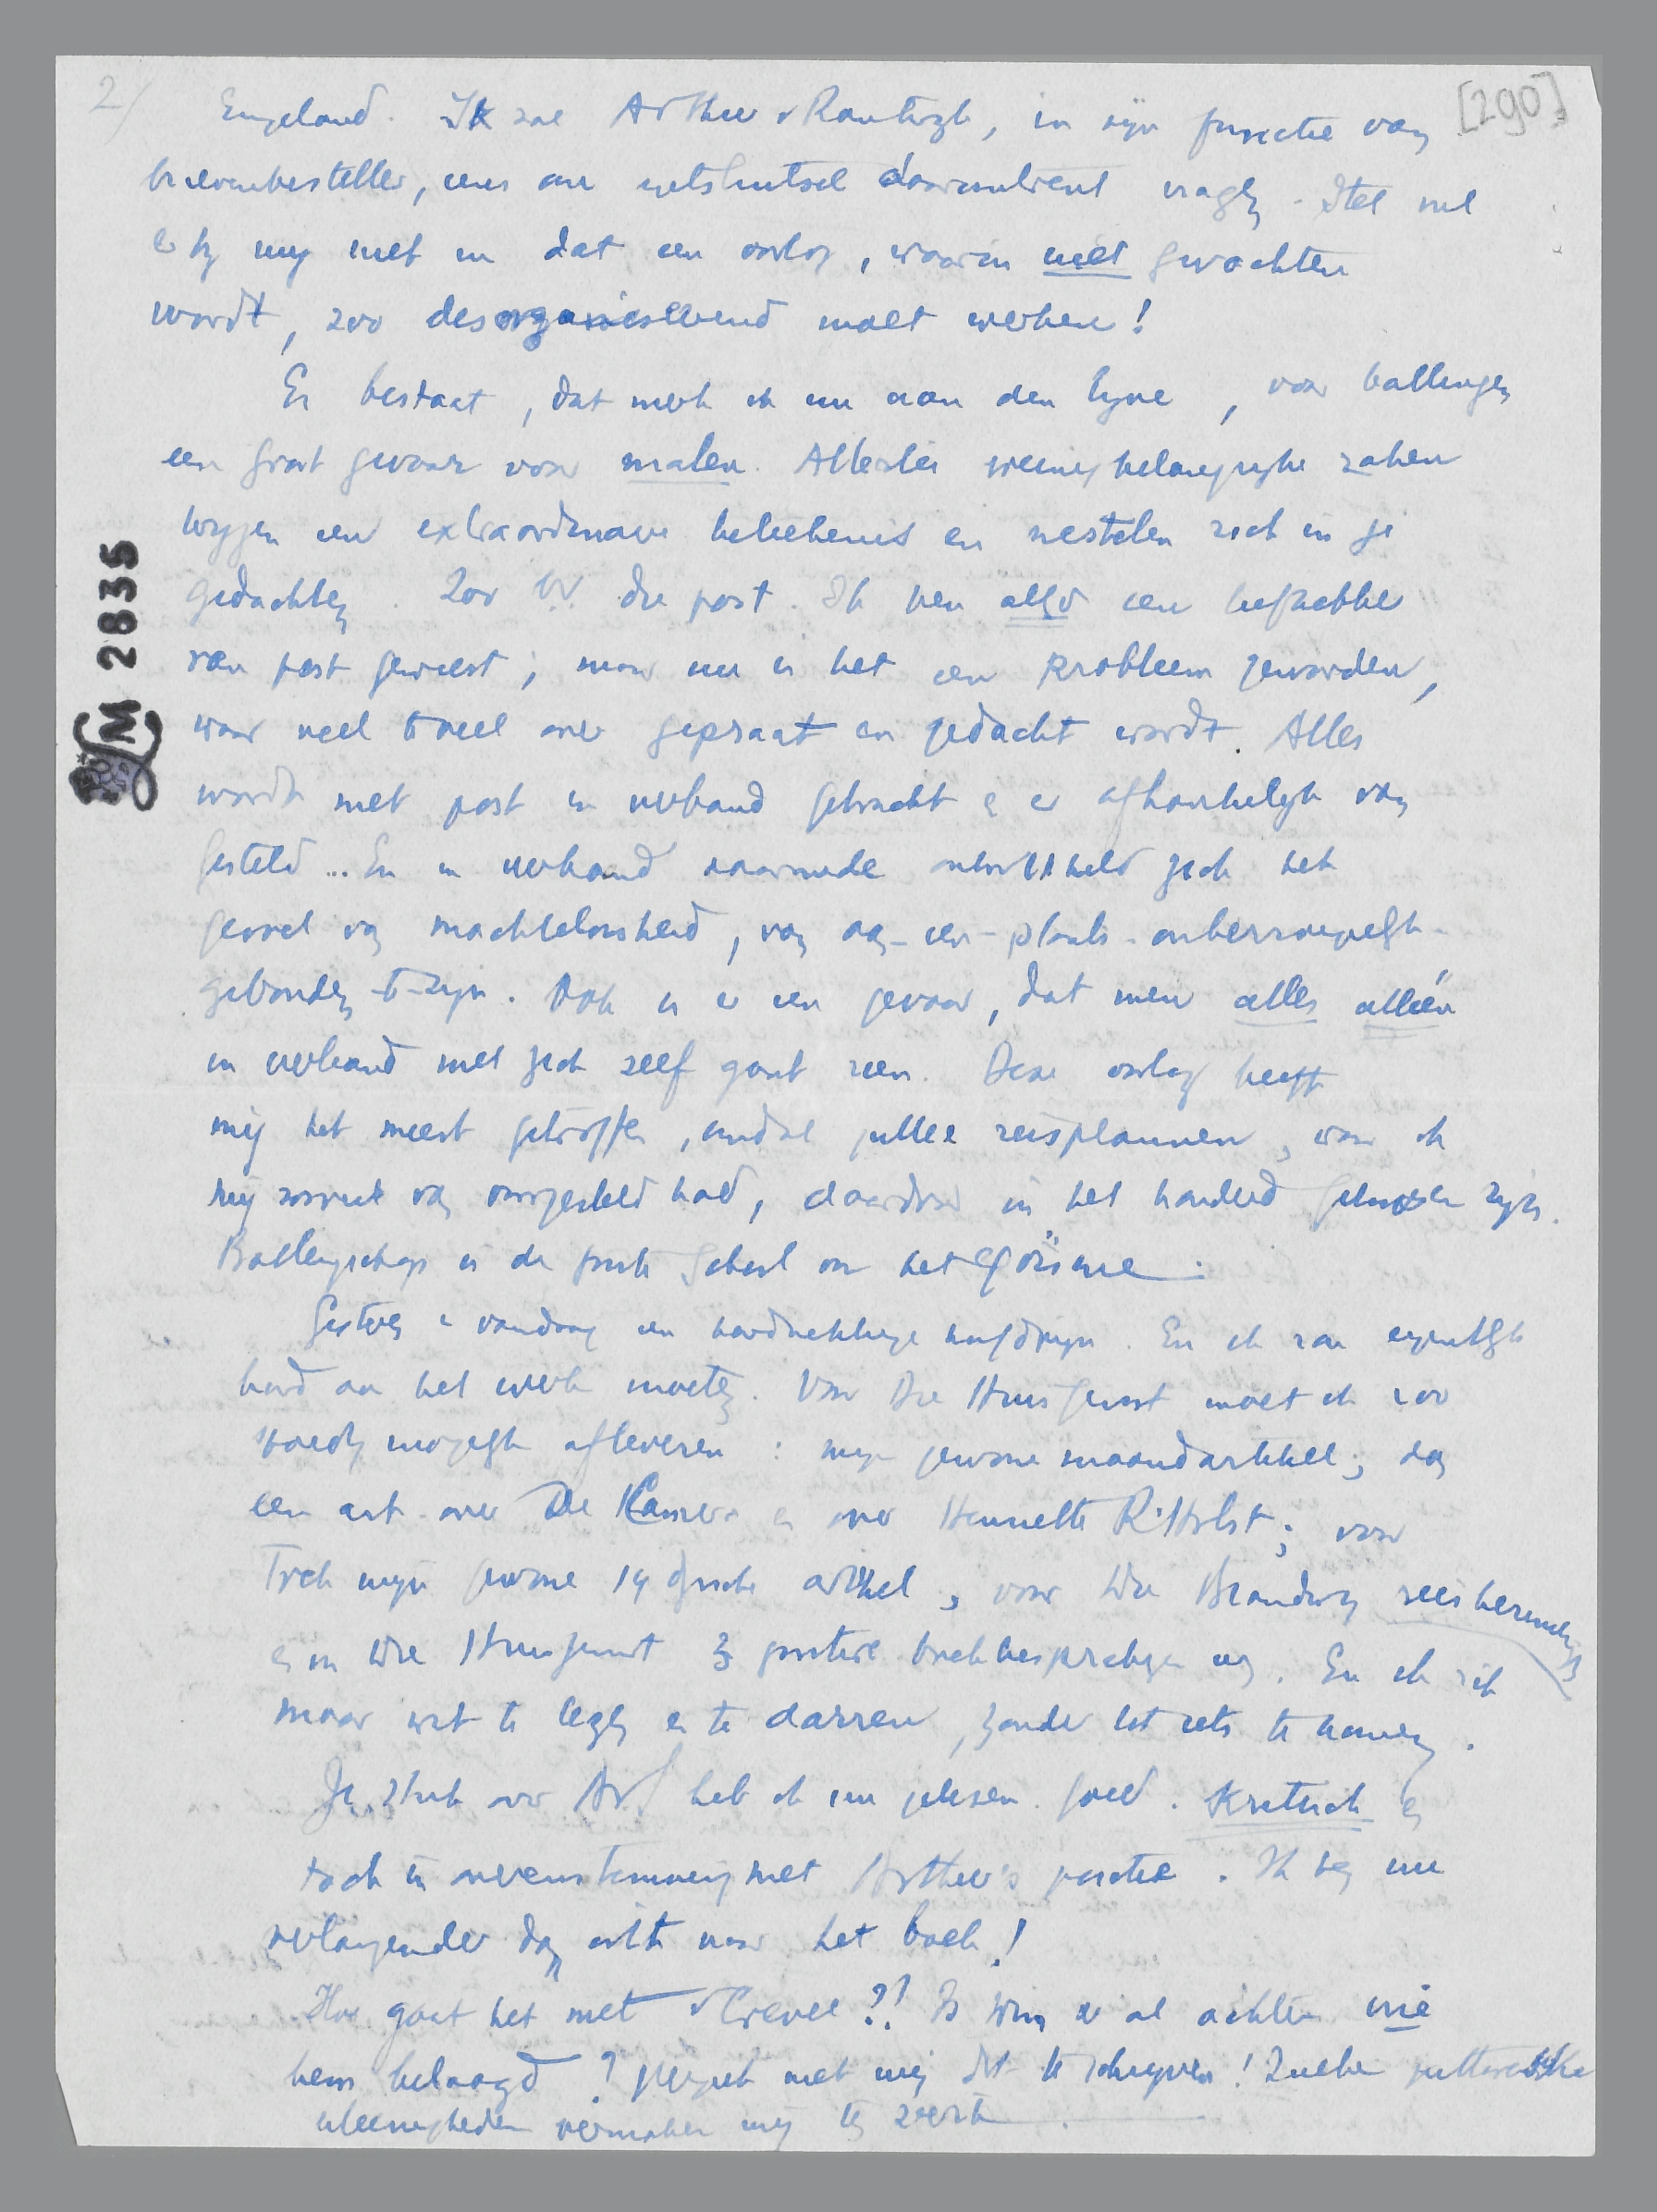 2/
[290]
Engeland. Ik zal Arthur v Rantwijk, in zijn functie van
brievenbesteller, eens om uitsluitsel daaromtrent vragen. Stel nu
er zij mij niet in dat een oorlog, waarin niet gevochten
wordt, zoo desorganiseerend moet werken!
Er bestaat, dat merk ik nu aan den lijve, voor ballingen
een groot gevaar voor malen. Allerlei weinig belangrijke zaken
krijgen een extraordinaire beteekenis en nestelen zich in je
gedachten. Zoo bv. die post. Ik ben altijd een liefhebber
van post geweest, maar nu is het een probleem geworden,
waar veel te veel over gepraat en gedacht wordt. Alles
wordt met post in verband gebracht & er afhankelijk van
gesteld... En in verband daarmede ontwikkeld zich het
gevoel van machteloosheid, van aan-een-plaats-onherroepelijk-
gebonden-te-zijn. Ook is er een gevaar, dat men alles alléén
in verband met zich zelf gaat zien. Deze oorlog heeft
mij het meest getroffen, omdat jullie reisplannen, waar ik
mij zooveel van voorgesteld had, daardoor in het honderd geloopen zijn.
Ballingschap is de groote school van het egoïsme.
Gisteren & vandaag een hardnekkige hoofdpijn. En ik zou eigenlijk
hard aan het werk moeten. Voor Die Huisgenoot moet ik zoo
spoedig mogelijk afleveren: mijn gewone maandartikel; dan
een art. over De Kamer en over Henriette R. Holst; voor
Trek mijn gewone 14 daagsche artikel, voor Die Brandwag reisherinneringen
en in Die Huisgenoot 3 groote boekbesprekingen. En ik zit
maar wat te lezen en te darren, zonder tot iets te komen.
Je stuk over Art heb ik nu gelezen. Goed. Kritisch en
toch in overeenstemming met Arthur's positie. Ik ben nu
verlangender dan ooit naar het boek!
Hoe gaat het met v Crevel?! Is Wim er al achter wie
hem belaagd? Vergeet niet mij dit te schrijven! Zulke pittoreske
kleinigheden vermaken mij ten zeerste.
LM 2835